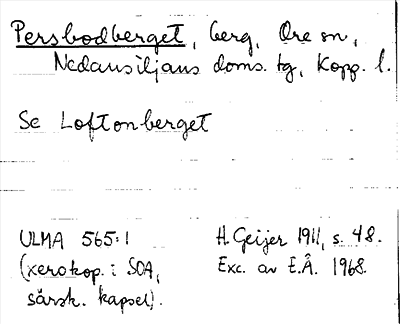 Persbodberget, berg, Ore sn,
Nedansiljans doms. tg, Kopp. l.
Se Loftonberget
ULMA 565:1
(xerokop. i SOA,
särsk. kapsel).
H. Geijer 1911, s. 48.
Exc. av E.Å. 1968.